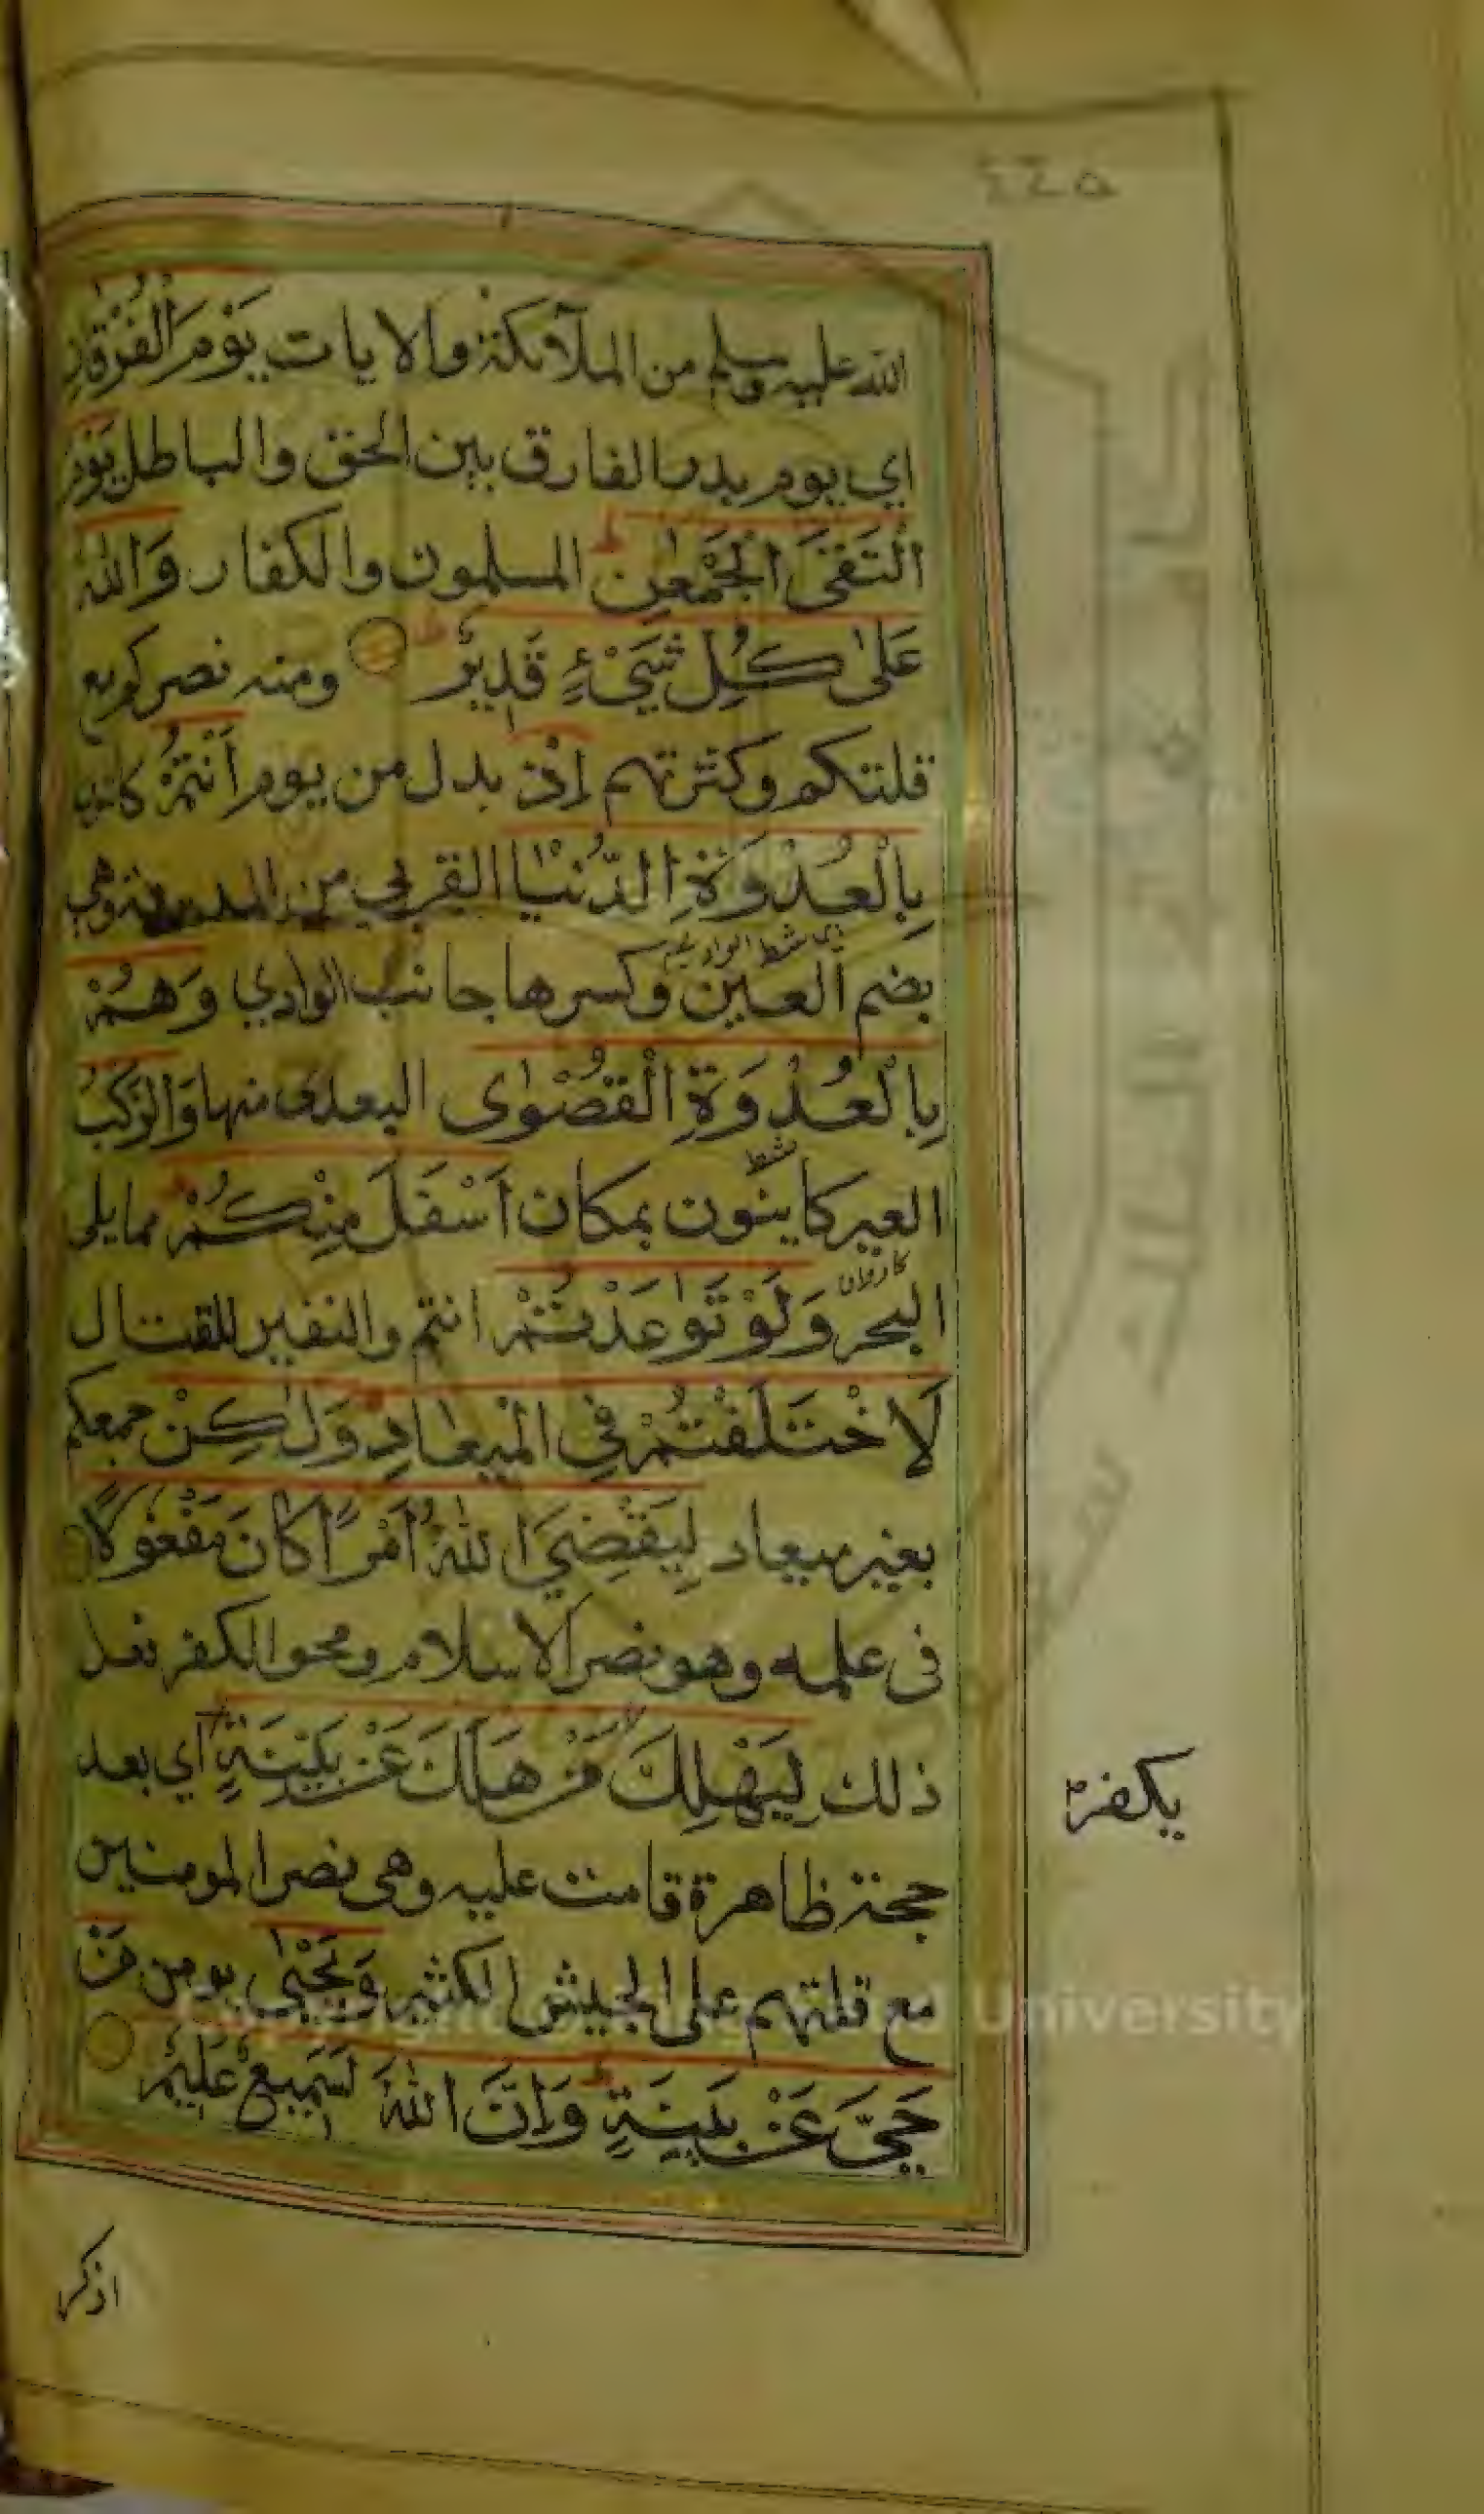 ٤٤٥
الله عليه وسلم من الملآئكة والايات يَوْمَ الْفُرْقَانِ
اي يوم بدر الفارق بين الحق والباطل يَوْمَ
الْتَقَى الْجَمْعٰنِ المسلمون والكفار وَاللّٰهُ
عَلٰى كُلِّ شَيْءٍ قَدِيْرٌ ومنه نصركم مع
قلتكم وكثرتهم اِذْ بدل من يوم اَنْتُمْ كائنون
بِالْعُدْوَةِ الدُّنْيَا القربى من المدينة وهي
بضم العين وكسرها جانب الوادي وَهُمْ
بِالْعُدْوَةِ الْقُصْوٰى البعدى منها وَالرَّكْبُ
العير كاينون بمكان اَسْفَلَ مِنْكُمْ مما يلى
كاروان
البحر وَلَوْ تَوٰعَدْتُمْ انتم والنفير للقتال
لَاخْتَلَفْتُمْ فِي الْمِيْعٰادِ وَلٰكِنْ جمعكم
بغير ميعاد لِيَقْضِيَ اللّٰهُ اَمْرًا كَانَ مَفْعُوْلًا
فى علمه وهو نصر الاسلام ومحو الكفر فعل
ذلك لِيَهْلِكَ مَنْ هَلَكَ عَنْ بَيِّنَةٍ اي بعد
يكفر
حجة ظاهرة قامت عليه وهى نصر المومنين
مع قلتهم على الجيش الكثير وَيَحْيٰى يومن مَنْ
حَيَّ عَنْ بَيِّنَةٍ وَاِنَّ اللّٰهَ لَسَمِيْعٌ عَلِيْمٌ
اذكر
University